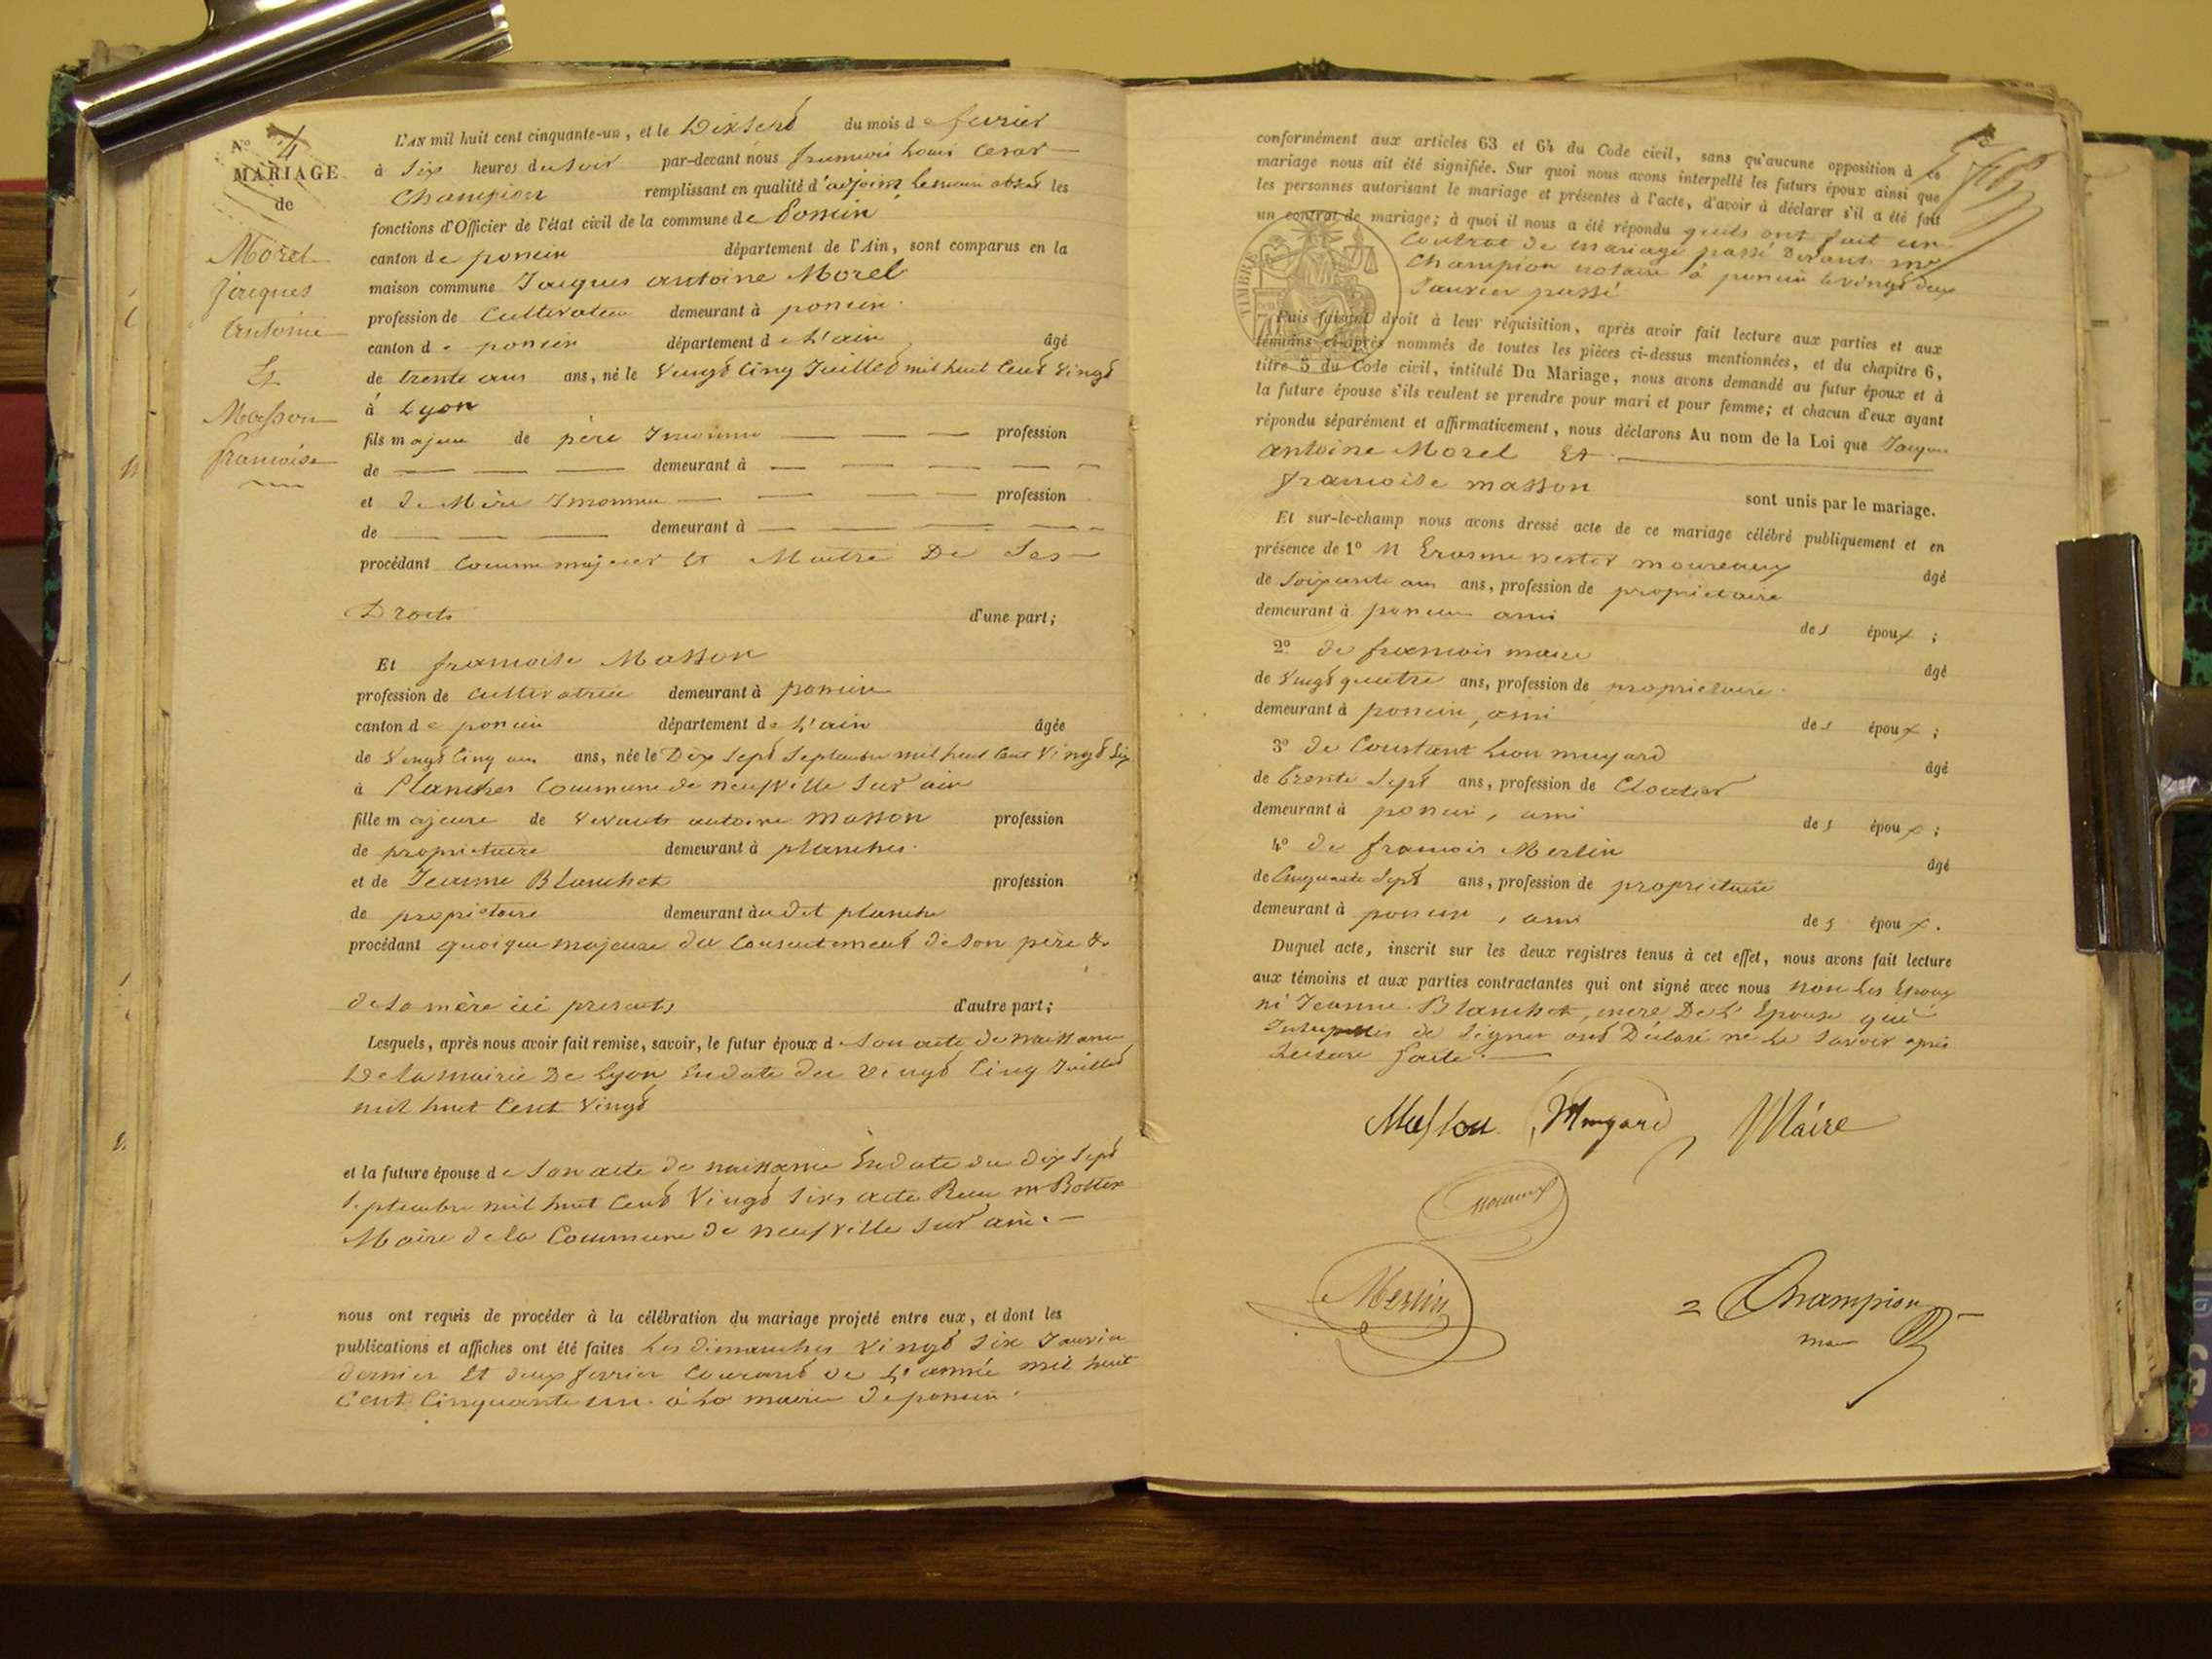 N° 4
MARIAGE
de
Morel
Jacques
Antoine
Et
Masson
francoise
L'AN mil huit cent cinquante-un, et le Dixsept du mois de fevrier
à Six heures du Soir par-devant nous francois Louis Cesar
Champion remplissant en qualité d'adjoint le maire absent les
fonctions d'Officier de l'état civil de la commune de Poncin
canton de poncin département de l'Ain, sont comparus en la
maison commune Jacques antoine Morel
profession de Cultivateur demeurant à poncin
canton de poncin département de L'ain âgé
de trente ans ans, né le Vingt Cinq Juillet mil huit Cent Vingt
à Lyon
fils majeur de père Inconnu profession
de demeurant à
et De Mère Inconnue profession
de demeurant à
procédant Comme majeur et Maitre De Ses
Droits d'une part;
Et francoise Masson
profession de Cultivatrice demeurant à poncin
canton de poncin département de L'ain âgée
de Vingt Cinq ans ans, née le Dix Sept Septembre mil huit Cent Vingt Six
à Planches Commune de neufville Sur ain
fille majeure de Vivants antoine Masson profession
de propriétaire demeurant à planches
et de Jeanne Blanchet profession
de propriétaire demeurant audit planche
procédant quoique majeure du Consentement de son père &
de sa mère ici presents d'autre part;
Lesquels, après nous avoir fait remise, savoir, le futur époux de Son acte de naissance
De la mairie De Lyon En date du Vingt Cinq Juillet
mil huit Cent Vingt
et la future épouse de Son acte de naissance En date du dix Sept
Septembre mil huit Cent Vingt Six acte Recu m Bottex
Maire de la Commune de neufville Sur ain.
nous ont requis de procéder à la célébration du mariage projeté entre eux, et dont les
publications et affiches ont été faites Les dimanches Vingt Six Janvier
dernier Et deux fevrier Courant de L'année mil huit
Cent Cinquante un à La mairie de poncin
conformément aux articles 63 et 64 du Code civil, sans qu'aucune opposition à ce
mariage nous ait été signifiée. Sur quoi nous avons interpellé les futurs époux ainsi que
les personnes autorisant le mariage et présentes à l'acte, d'avoir à déclarer s'il a été fait
un contrat de mariage; à quoi il nous a été répondu quils ont fait un
Contrat de mariage passé Devant me
Champion notaire à poncin le vingt deux
Janvier passé
TIMBRE
Puis faisant droit à leur réquisition, après avoir fait lecture aux parties et aux
témoins ci-après nommés de toutes les pièces ci-dessus mentionnées, et du chapitre 6,
titre 5 du Code civil, intitulé Du Mariage, nous avons demandé au futur époux et à
la future épouse s'ils veulent se prendre pour mari et pour femme; et chacun d'eux ayant
répondu séparément et affirmativement, nous déclarons Au nom de la Loi que Jacques
antoine Morel Et
francoise masson sont unis par le mariage.
Et sur-le-champ nous avons dressé acte de ce mariage célébré publiquement et en
présence de 1° M Erasme moureaux âgé
de Soixante ans ans, profession de propriétaire
demeurant à poncin ami des époux;
2° de francois maire âgé
de Vingt quatre ans, profession de propriétaire
demeurant à poncin, ami des époux;
3° de Constant Leon mugard âgé
de trente Sept ans, profession de Cloutier
demeurant à poncin, ami des époux;
4° de francois Merlin âgé
de Cinquante Sept ans, profession de propriétaire
demeurant à poncin, ami des époux.
Duquel acte, inscrit sur les deux registres tenus à cet effet, nous avons fait lecture
aux témoins et aux parties contractantes qui ont signé avec nous non Les Epoux
ni Jeanne Blanchet, mere De L'Epouse qui
de Signer ont Déclaré ne Le Savoir après
Lecture faite.
Masson Mugard Maire
Merlin
Champion